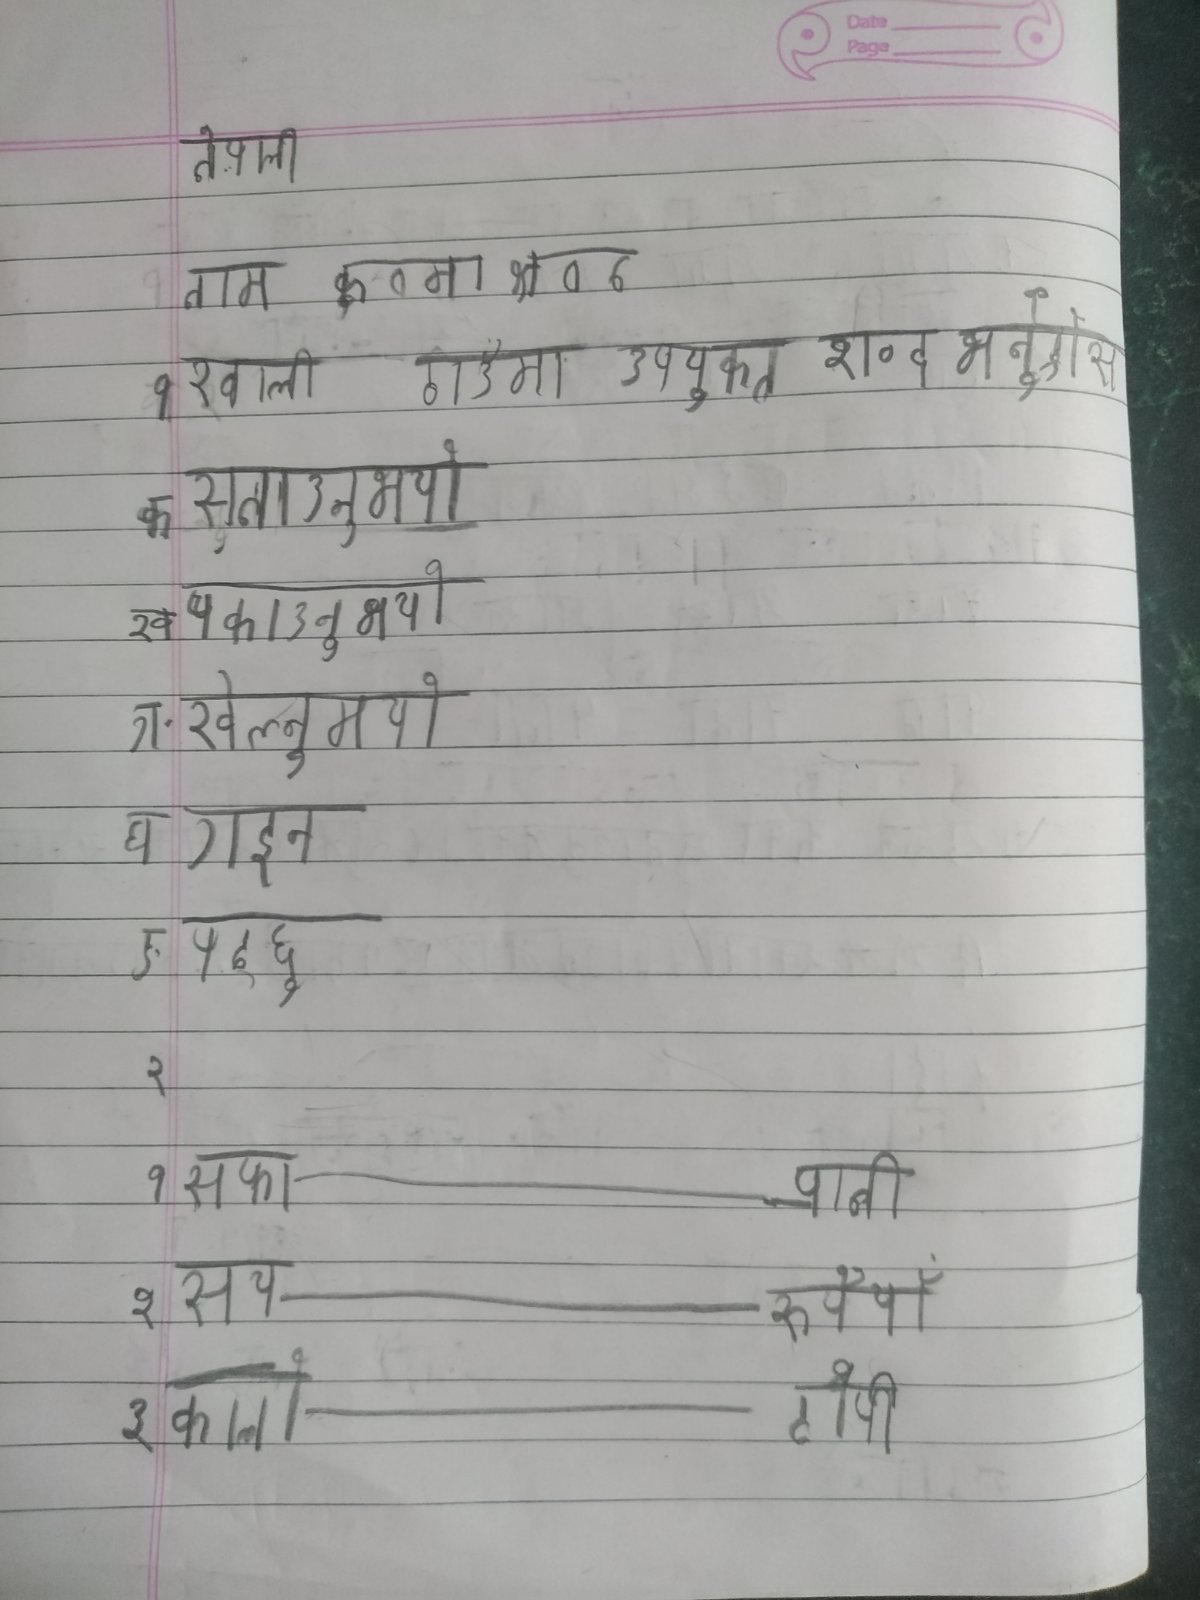 Date
Page
नेपाली
नाम
१ खाली ठाउँमा उपयुकत शब्द भर्नुहोस
क सुताउनुभयो
ख पकाउनुभयो
ग. खेल्नुभयो
घ गइन
ङ पढ्छु
२
१ सफा पानी
२ सय रुपैयाँ
३ कालो टोपी